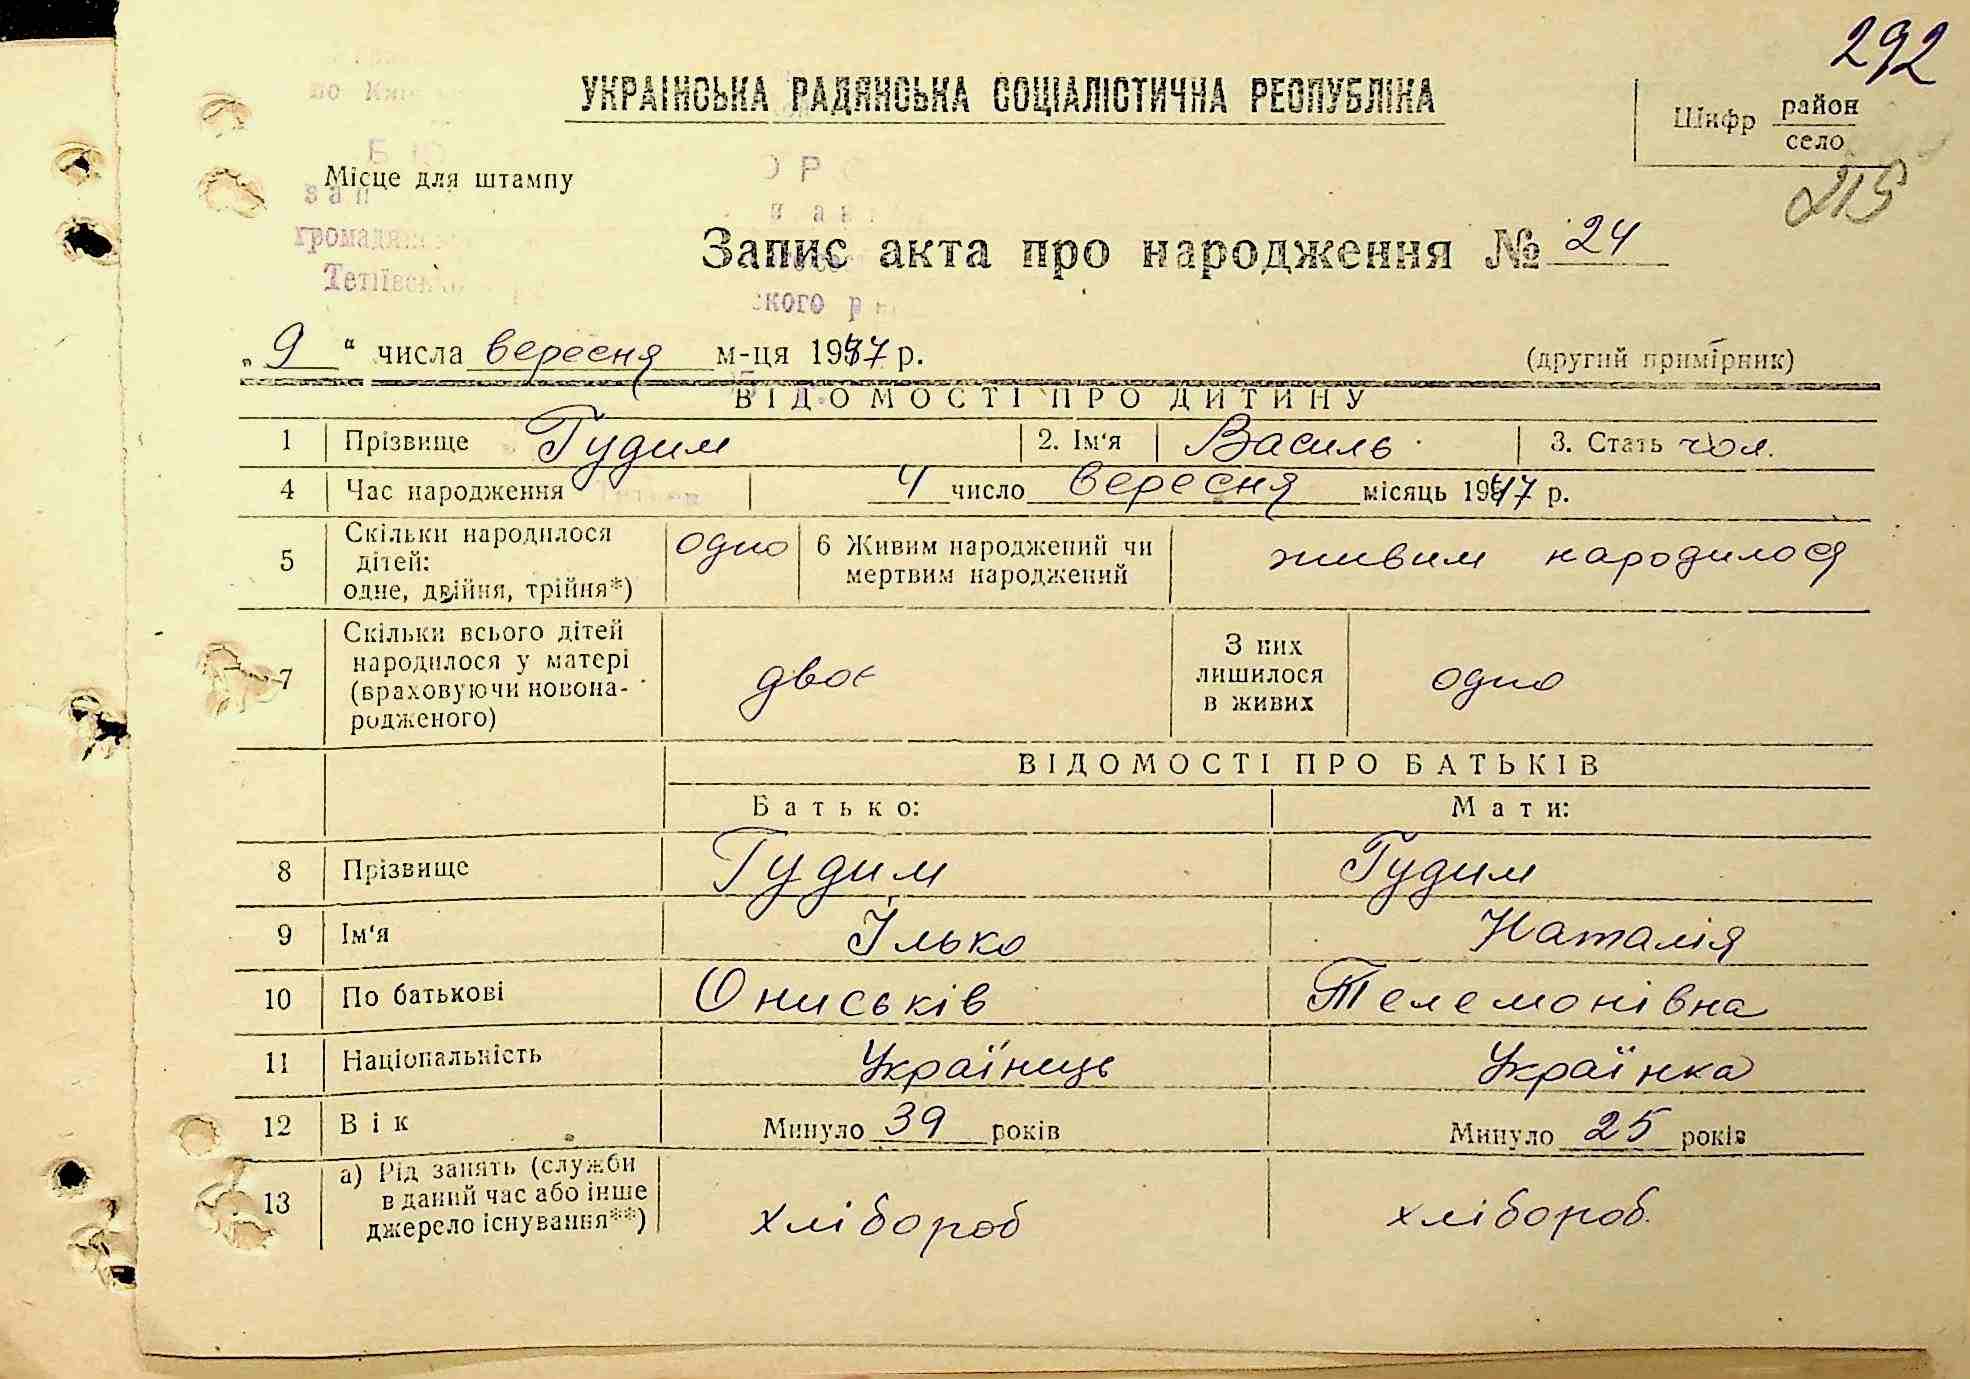 292
УКРАЇНСЬКА РАДЯНСЬКА СОЦІАЛІСТИЧНА РЕСПУБЛІКА
Шифр район
село
215
Місце для штампу
Запис акта про народження № 24
„9“ числа вересня м-ця 1947 р. (другий примірник)
ВІДОМОСТІ ПРО ДИТИНУ
1 Прізвище Гудим 2. Ім'я Василь 3. Стать чол.
4 Час народження 4 число вересня місяць 1947 р.
5 Скільки народилося дітей: одне, двійня, трійня*) одно 6 Живим народжений чи мертвим народжений живим народилося
7 Скільки всього дітей народилося у матері (враховуючи новонародженого) двоє З них лишилося в живих одно
ВІДОМОСТІ ПРО БАТЬКІВ
Батько: Мати:
8 Прізвище Гудим Гудим
9 Ім'я Ілько Наталія
10 По батькові Ониськів Телемонівна
11 Національність Українець Українка
12 Вік Минуло 39 років Минуло 25 років
13 а) Рід занять (служби в даний час або інше джерело існування**) хлібороб хлібороб